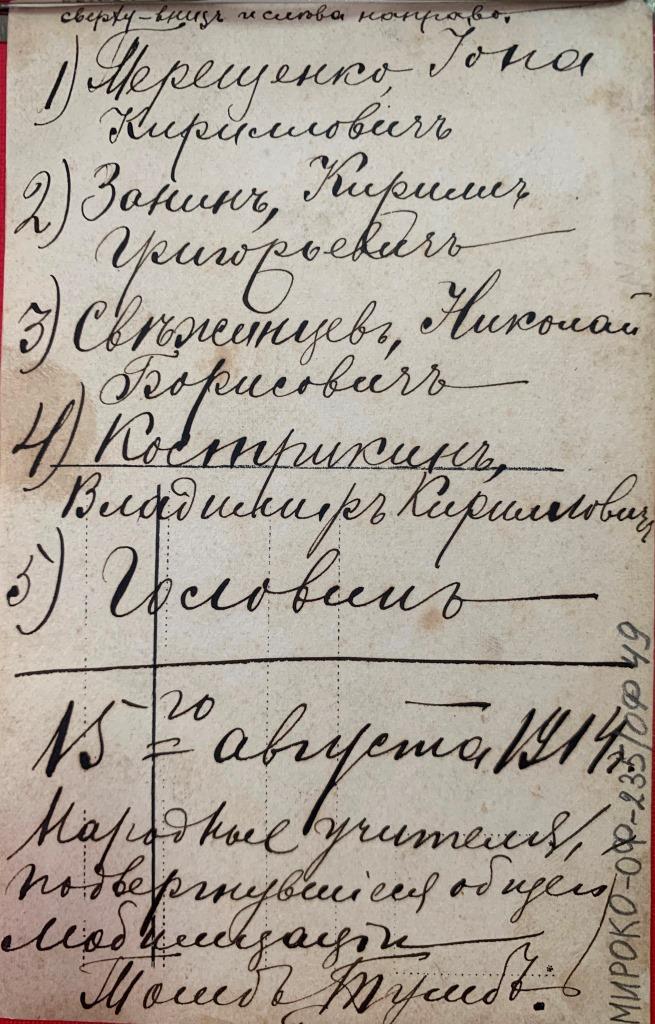 сверху-внизъ и слѣва направо.
1) Терещенко, Іона
Кирилловичъ
2) Занинъ, Кириллъ
Григорьевичъ
3) Свѣжинцевъ, Николай
Борисовичъ
4) Кострикинъ,
Владимиръ Кирилловичъ
5) Головинъ
15го августа 1914 г.
Народные учителя,
подвергнувшіеся общей
мобилизаціи
МИРОКО-ОФ-235/ОФ 49